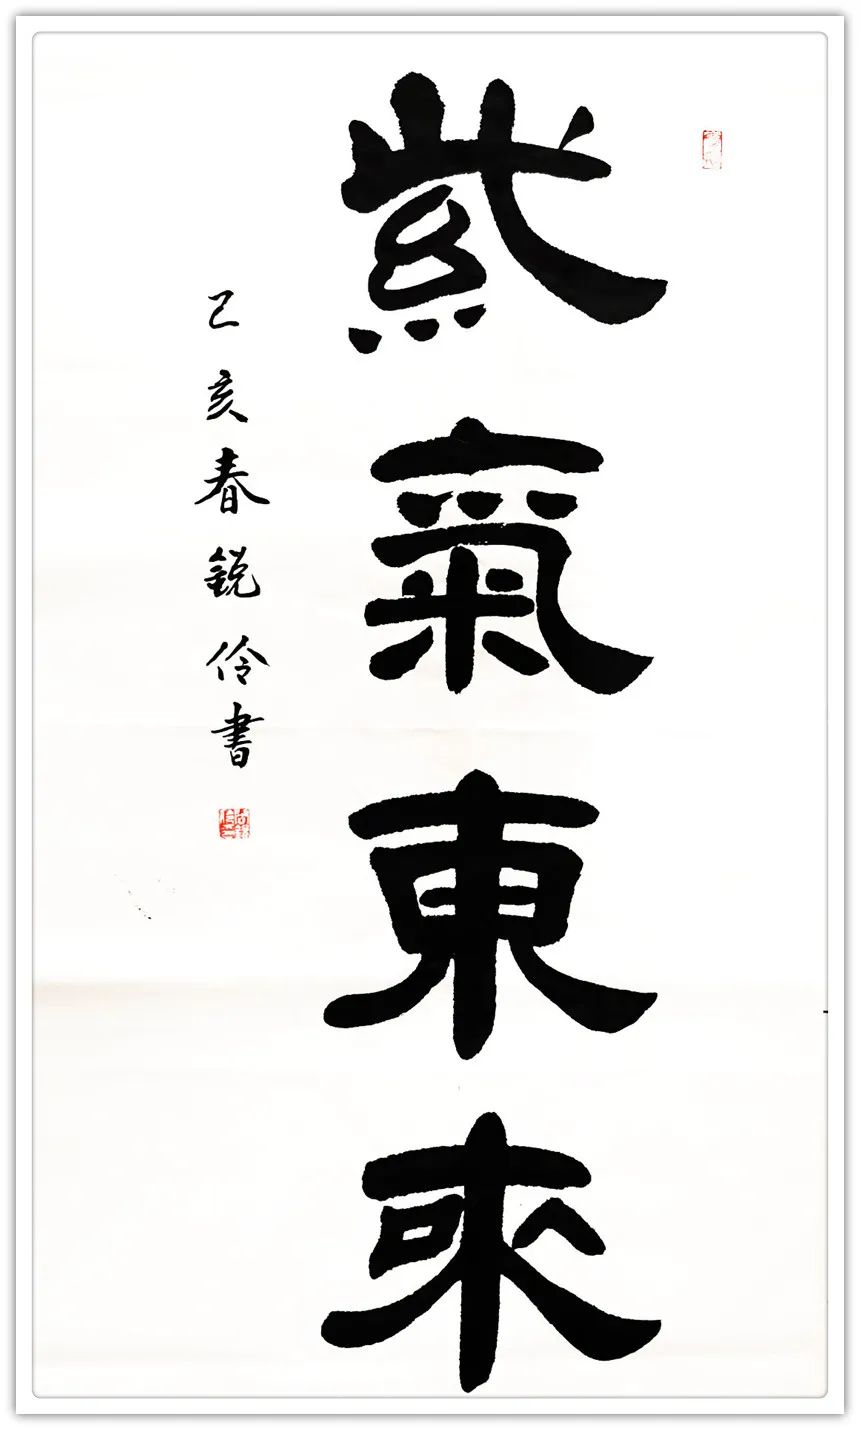 紫氣東來
己亥春銳伶書